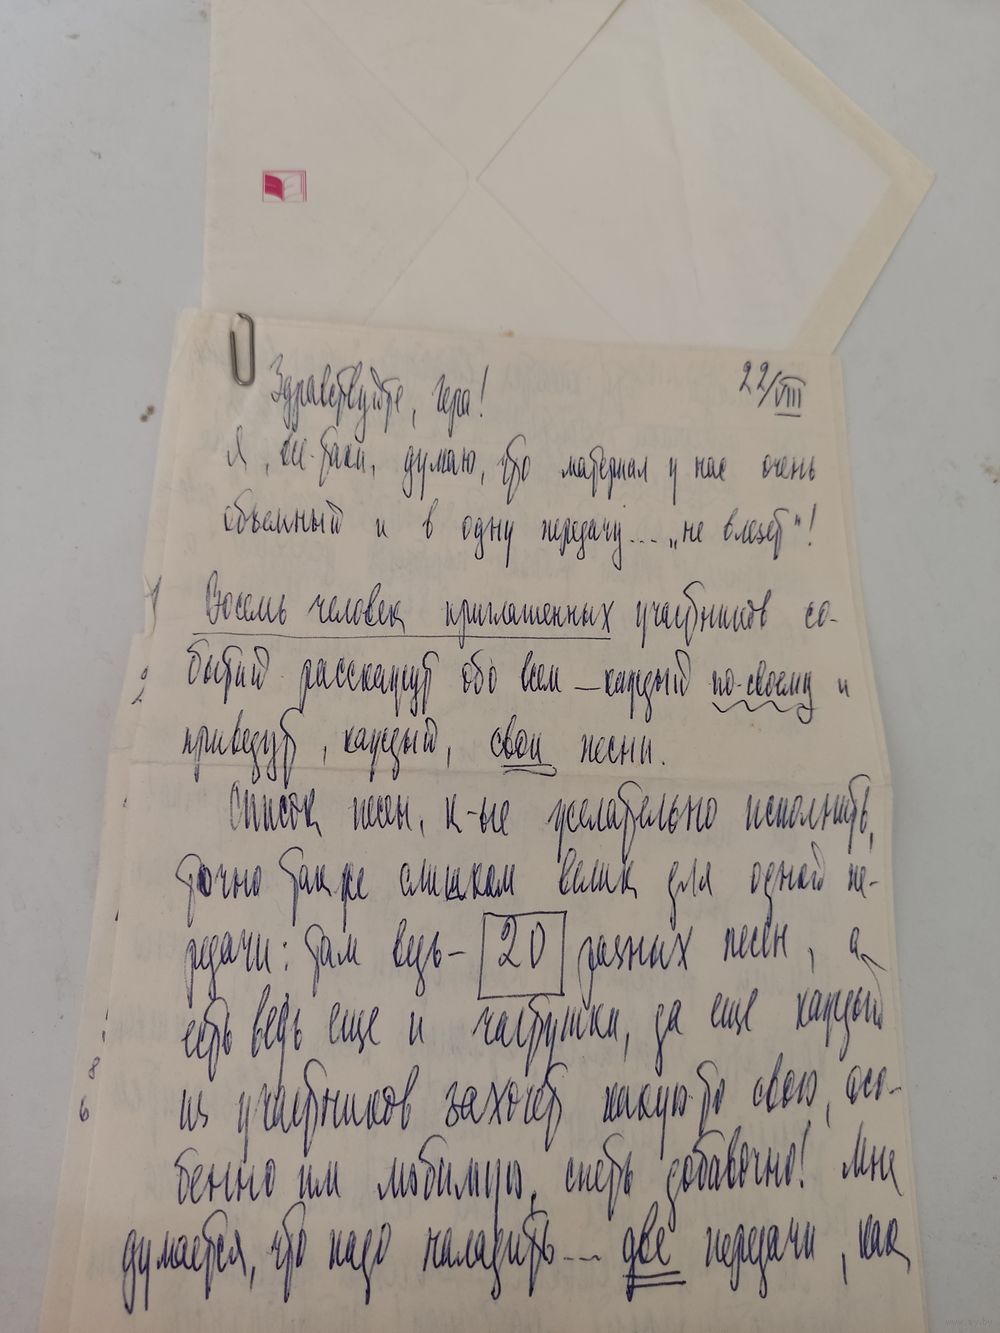 22/VIII
Здравствуйте, Гера!
Я, все-таки, думаю, что материал у нас очень
объемный и в одну передачу... „не влезет"!
Восемь человек приглашенных участников со-
бытий расскажут обо всем – каждый по-своему и
приведут, каждый, свои песни.
Список песен, к-ые желательно исполнить,
точно также слишком велик для одной пе-
редачи: там ведь – 20 разных песен, а
есть ведь еще и частушки, да еще каждый
из участников захочет какую-то свою, осо-
бенно им любимую, спеть добавочно! Мне
думается, что надо наладить... две передачи, как
1
2
8
6